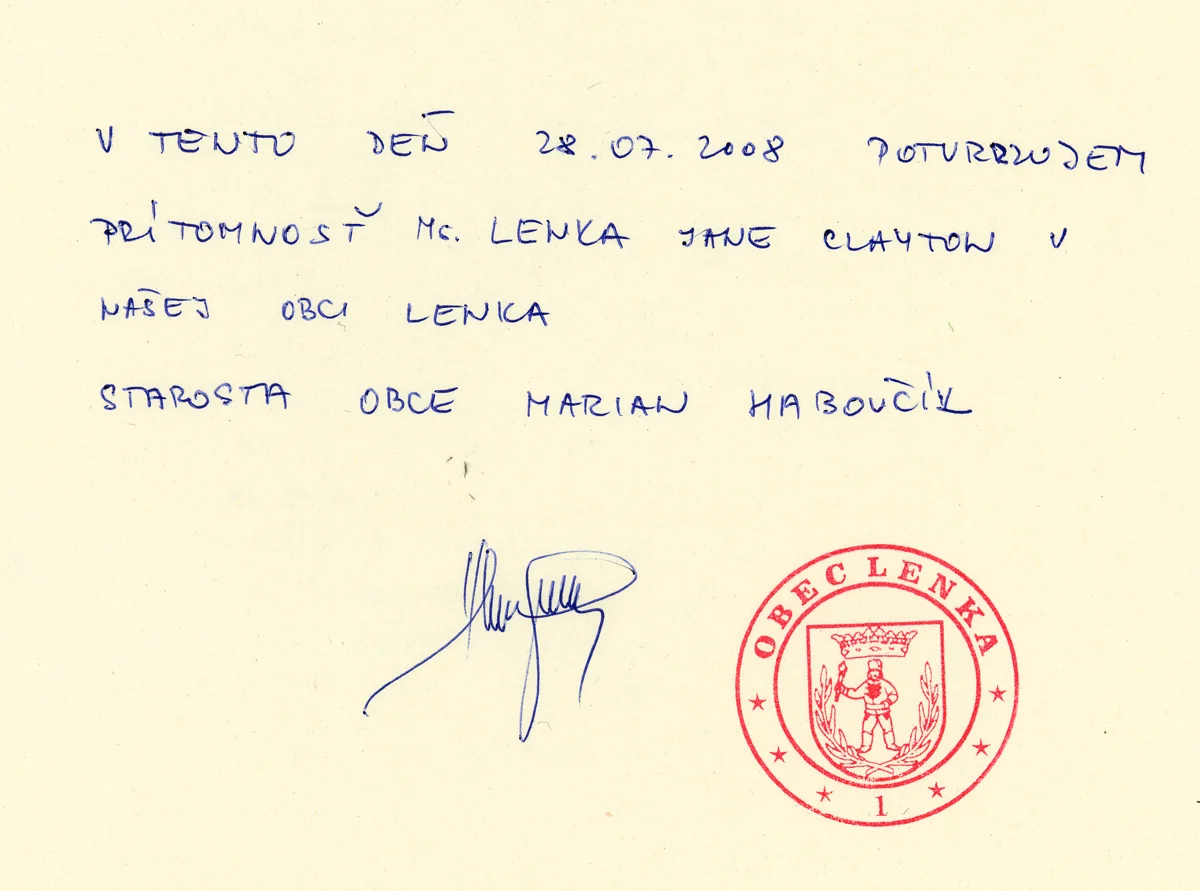 V TENTO DEŇ 28.07.2008 POTVRDZUJEM
PRÍTOMNOSŤ Ms. LENKA JANE CLAYTON V
NAŠEJ OBCI LENKA
STAROSTA OBCE MARIAN HABOVČÍK
OBEC LENKA
1